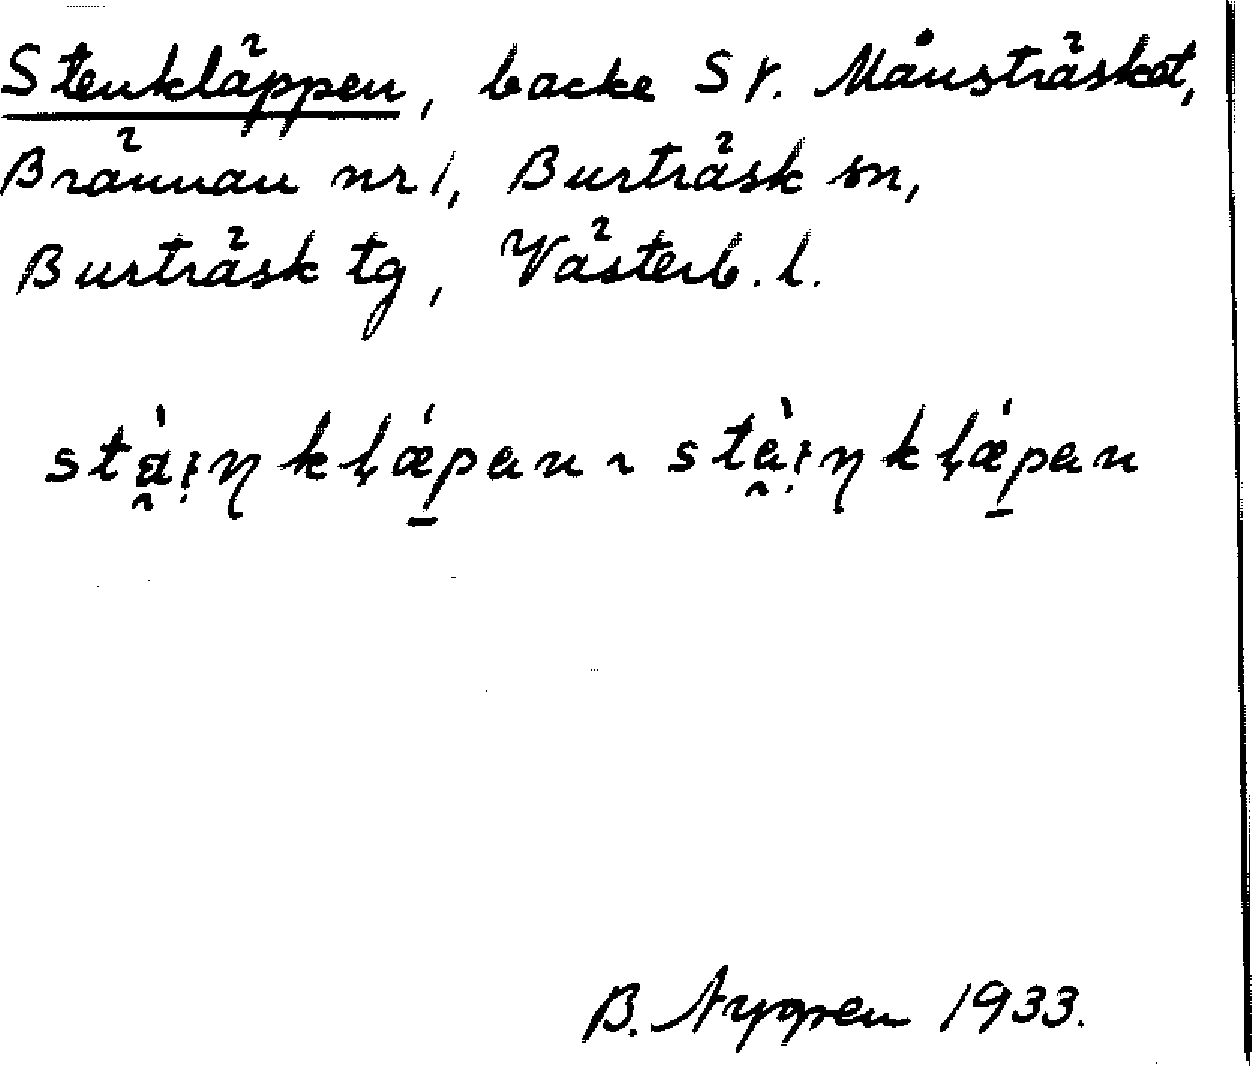 Stenkläppen, backe S r. Månsträsket,
Brännan nr 1, Burträsk sn,
Burträsk tg, Västerb. l.
stà̰i̯ŋkḷǽp̱an ~ stà̰i̯ŋkḷǽp̱an
B. Nygren 1933.